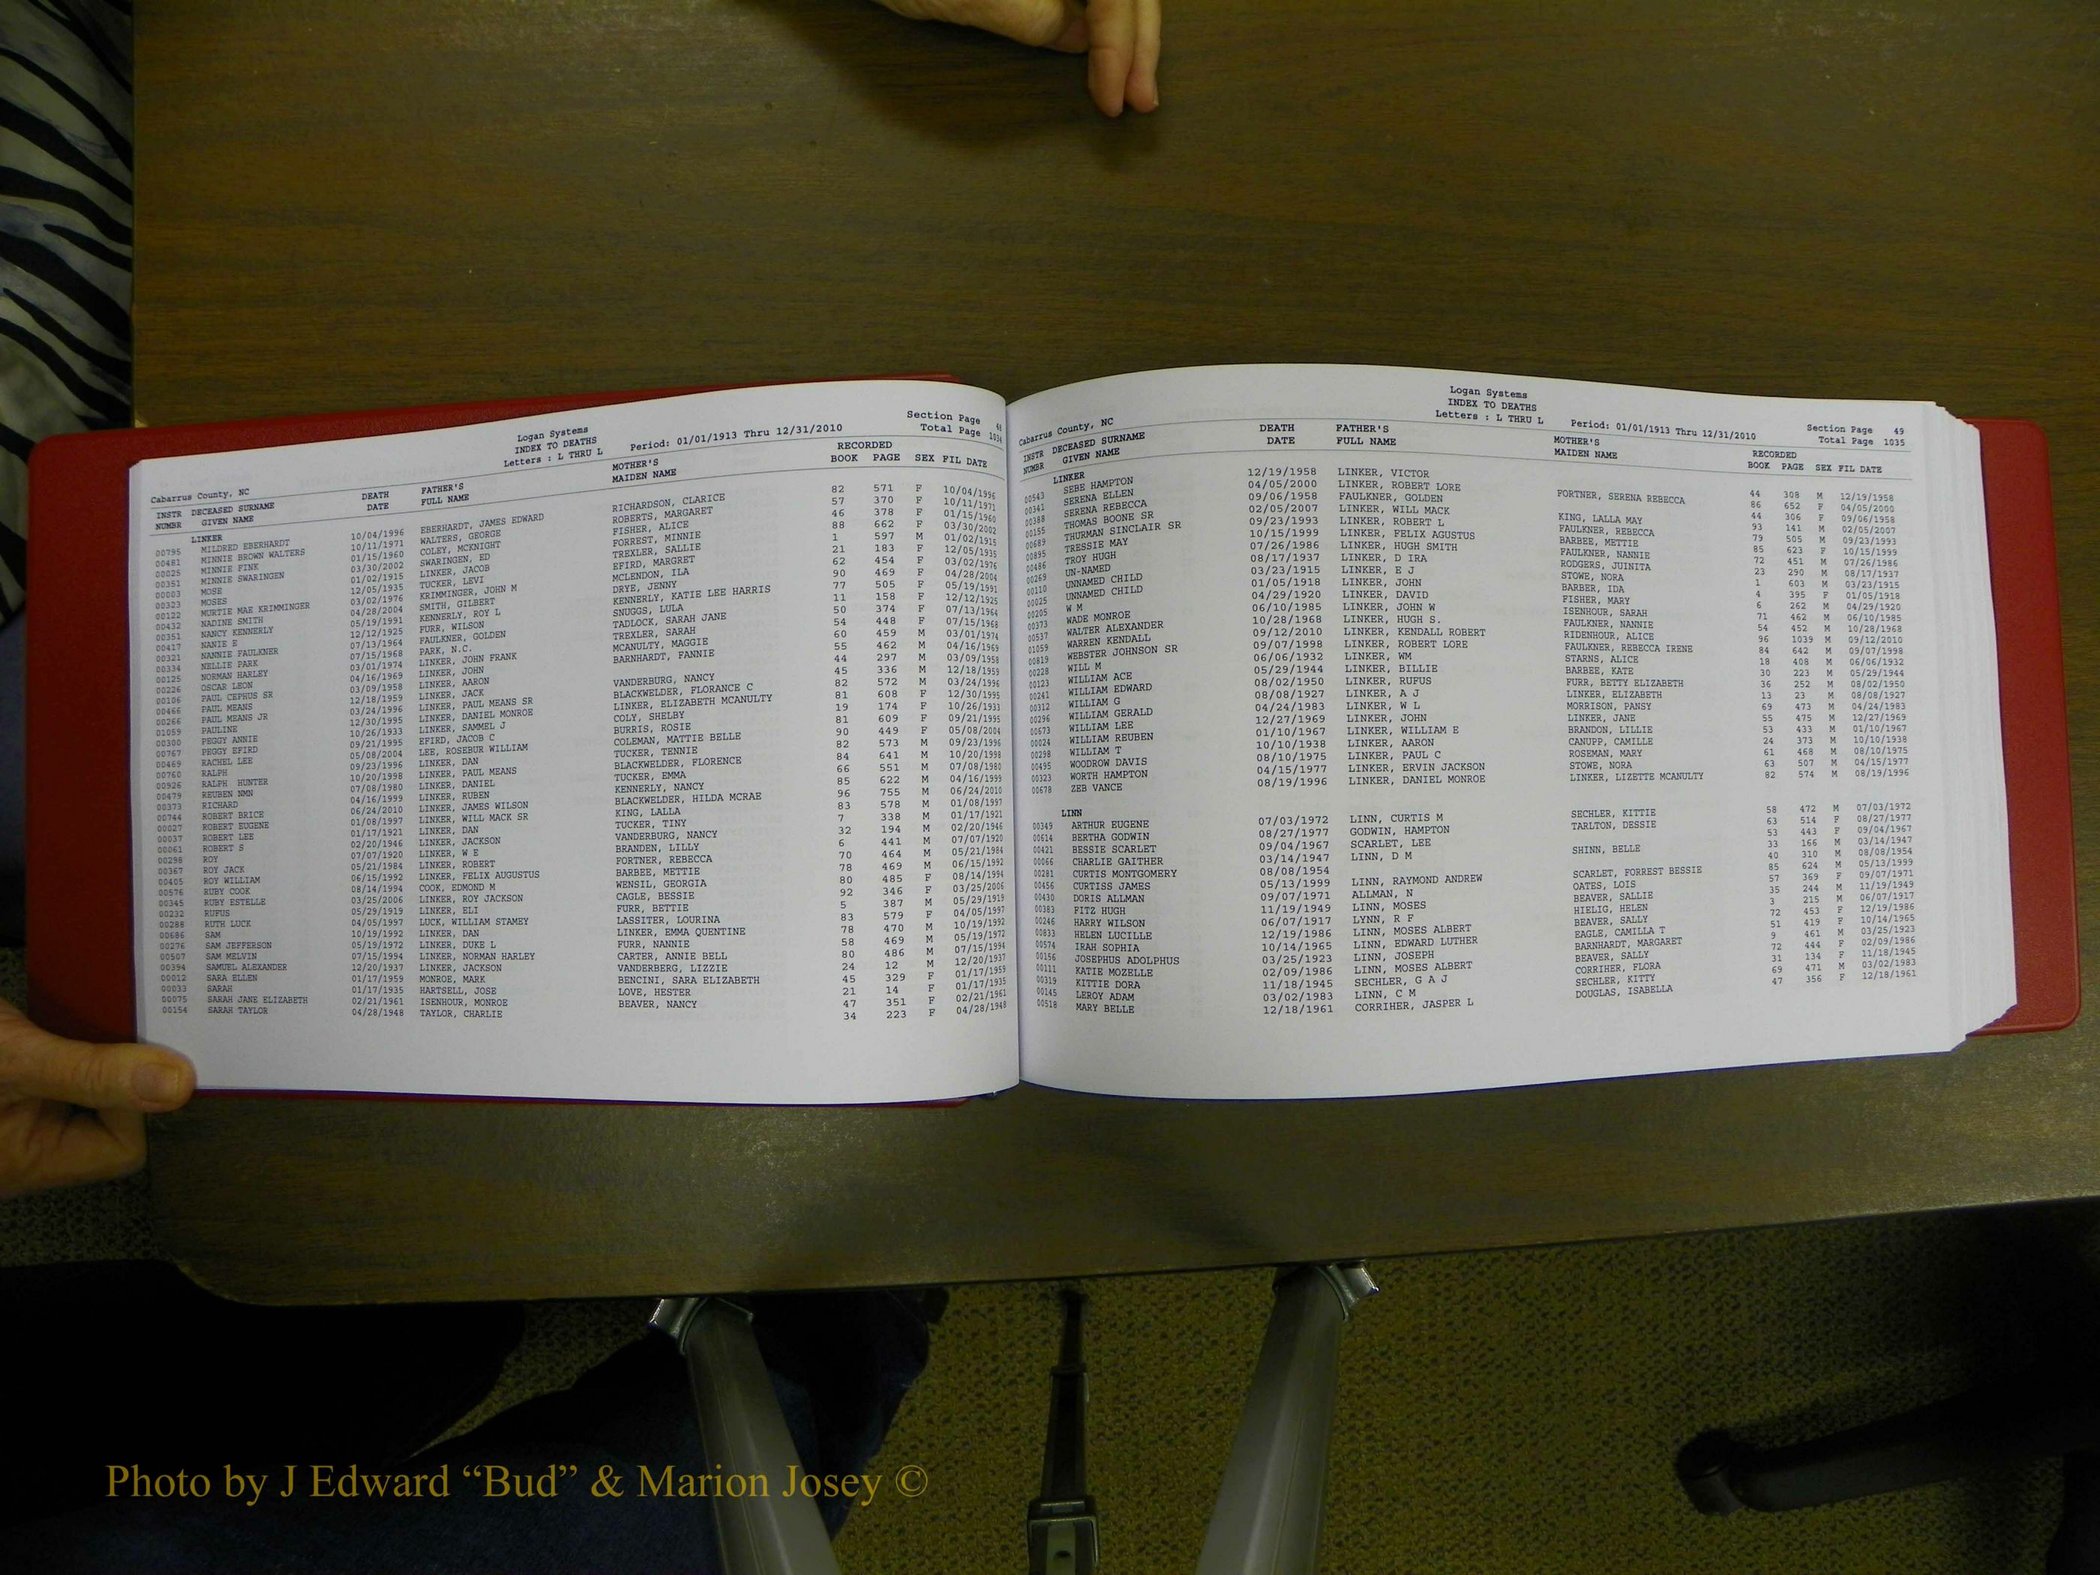 Cabarrus County, NC
Logan Systems
INDEX TO DEATHS
Letters : L THRU L
Period: 01/01/1913 Thru 12/31/2010
Section Page 48
Total Page 1034
INSTR DECEASED SURNAME DEATH FATHER'S MOTHER'S RECORDED
NUMBR GIVEN NAME DATE FULL NAME MAIDEN NAME BOOK PAGE SEX FIL DATE
LINKER
00795 MILDRED EBERHARDT 10/04/1996 EBERHARDT, JAMES EDWARD RICHARDSON, CLARICE 82 571 F 10/04/1996
00481 MINNIE BROWN WALTERS 10/11/1971 WALTERS, GEORGE ROBERTS, MARGARET 57 370 F 10/11/1971
00025 MINNIE FINK 01/15/1960 COLEY, MCKNIGHT FISHER, ALICE 46 378 F 01/15/1960
00351 MINNIE SWARINGEN 03/30/2002 SWARINGEN, ED FORREST, MINNIE 88 662 F 03/30/2002
00003 MOSE 01/02/1915 LINKER, JACOB TREXLER, SALLIE 1 597 M 01/02/1915
00323 MOSES 12/05/1935 TUCKER, LEVI EFIRD, MARGRET 21 183 F 12/05/1935
00122 MURTIE MAE KRIMMINGER 03/02/1976 KRIMMINGER, JOHN M MCLENDON, ILA 62 454 F 03/02/1976
00432 NADINE SMITH 04/28/2004 SMITH, GILBERT DRYE, JENNY 90 469 F 04/28/2004
00351 NANCY KENNERLY 05/19/1991 KENNERLY, ROY L KENNERLY, KATIE LEE HARRIS 77 505 F 05/19/1991
00417 NANIE E 12/12/1925 FURR, WILSON SNUGGS, LULA 11 158 F 12/12/1925
00321 NANNIE FAULKNER 07/13/1964 FAULKNER, GOLDEN TADLOCK, SARAH JANE 50 374 F 07/13/1964
00334 NELLIE PARK 07/15/1968 PARK, N.C. TREXLER, SARAH 54 448 F 07/15/1968
00125 NORMAN HARLEY 03/01/1974 LINKER, JOHN FRANK MCANULTY, MAGGIE 60 459 M 03/01/1974
00226 OSCAR LEON 04/16/1969 LINKER, JOHN BARNHARDT, FANNIE 55 462 M 04/16/1969
00106 PAUL CEPHUS SR 03/09/1958 LINKER, AARON 44 297 M 03/09/1958
00466 PAUL MEANS 12/18/1959 LINKER, JACK VANDERBURG, NANCY 45 336 M 12/18/1959
00266 PAUL MEANS JR 03/24/1996 LINKER, PAUL MEANS SR BLACKWELDER, FLORANCE C 82 572 M 03/24/1996
01059 PAULINE 12/30/1995 LINKER, DANIEL MONROE LINKER, ELIZABETH MCANULTY 81 608 F 12/30/1995
00300 PEGGY ANNIE 10/26/1933 LINKER, SAMMEL J COLY, SHELBY 19 174 F 10/26/1933
00767 PEGGY EFIRD 09/21/1995 EFIRD, JACOB C BURRIS, ROSIE 81 609 F 09/21/1995
00469 RACHEL LEE 05/08/2004 LEE, ROSEBUR WILLIAM COLEMAN, MATTIE BELLE 90 449 F 05/08/2004
00760 RALPH 09/23/1996 LINKER, DAN TUCKER, TENNIE 82 573 M 09/23/1996
00926 RALPH HUNTER 10/20/1998 LINKER, PAUL MEANS BLACKWELDER, FLORENCE 84 641 M 10/20/1998
00479 REUBEN NMN 07/08/1980 LINKER, DANIEL TUCKER, EMMA 66 551 M 07/08/1980
00373 RICHARD 04/16/1999 LINKER, RUBEN KENNERLY, NANCY 85 622 M 04/16/1999
00744 ROBERT BRICE 06/24/2010 LINKER, JAMES WILSON BLACKWELDER, HILDA MCRAE 96 755 M 06/24/2010
00027 ROBERT EUGENE 01/08/1997 LINKER, WILL MACK SR KING, LALLA 83 578 M 01/08/1997
00037 ROBERT LEE 01/17/1921 LINKER, DAN TUCKER, TINY 7 338 M 01/17/1921
00061 ROBERT S 02/20/1946 LINKER, JACKSON VANDERBURG, NANCY 32 194 M 02/20/1946
00298 ROY 07/07/1920 LINKER, W E BRANDEN, LILLY 6 441 M 07/07/1920
00367 ROY JACK 05/21/1984 LINKER, ROBERT FORTNER, REBECCA 70 464 M 05/21/1984
00405 ROY WILLIAM 06/15/1992 LINKER, FELIX AUGUSTUS BARBEE, METTIE 78 469 M 06/15/1992
00576 RUBY COOK 08/14/1994 COOK, EDMOND M WENSIL, GEORGIA 80 485 F 08/14/1994
00345 RUBY ESTELLE 03/25/2006 LINKER, ROY JACKSON CAGLE, BESSIE 92 346 F 03/25/2006
00232 RUFUS 05/29/1919 LINKER, ELI FURR, BETTIE 5 387 M 05/29/1919
00288 RUTH LUCK 04/05/1997 LUCK, WILLIAM STAMEY LASSITER, LOURINA 83 579 F 04/05/1997
00686 SAM 10/19/1992 LINKER, DAN LINKER, EMMA QUENTINE 78 470 M 10/19/1992
00276 SAM JEFFERSON 05/19/1972 LINKER, DUKE L FURR, NANNIE 58 469 M 05/19/1972
00507 SAM MELVIN 07/15/1994 LINKER, NORMAN HARLEY CARTER, ANNIE BELL 80 486 M 07/15/1994
00394 SAMUEL ALEXANDER 12/20/1937 LINKER, JACKSON VANDERBERG, LIZZIE 24 12 M 12/20/1937
00012 SARA ELLEN 01/17/1959 MONROE, MARK BENCINI, SARA ELIZABETH 45 329 F 01/17/1959
00033 SARAH 01/17/1935 HARTSELL, JOSE LOVE, HESTER 21 14 F 01/17/1935
00075 SARAH JANE ELIZABETH 02/21/1961 ISENHOUR, MONROE BEAVER, NANCY 47 351 F 02/21/1961
00154 SARAH TAYLOR 04/28/1948 TAYLOR, CHARLIE 34 223 F 04/28/1948
Cabarrus County, NC
Logan Systems
INDEX TO DEATHS
Letters : L THRU L
Period: 01/01/1913 Thru 12/31/2010
Section Page 49
Total Page 1035
INSTR DECEASED SURNAME DEATH FATHER'S MOTHER'S RECORDED
NUMBR GIVEN NAME DATE FULL NAME MAIDEN NAME BOOK PAGE SEX FIL DATE
LINKER
00543 SEBE HAMPTON 12/19/1958 LINKER, VICTOR 44 308 M 12/19/1958
00341 SERENA ELLEN 04/05/2000 LINKER, ROBERT LORE FORTNER, SERENA REBECCA 86 652 F 04/05/2000
00388 SERENA REBECCA 09/06/1958 FAULKNER, GOLDEN 44 306 F 09/06/1958
00155 THOMAS BOONE SR 02/05/2007 LINKER, WILL MACK KING, LALLA MAY 93 141 M 02/05/2007
00689 THURMAN SINCLAIR SR 09/23/1993 LINKER, ROBERT L FAULKNER, REBECCA 79 505 M 09/23/1993
00895 TRESSIE MAY 10/15/1999 LINKER, FELIX AGUSTUS BARBEE, METTIE 85 623 F 10/15/1999
00486 TROY HUGH 07/26/1986 LINKER, HUGH SMITH FAULKNER, NANNIE 72 451 M 07/26/1986
00269 UN-NAMED 08/17/1937 LINKER, D IRA RODGERS, JUINITA 23 290 M 08/17/1937
00110 UNNAMED CHILD 03/23/1915 LINKER, E J STOWE, NORA 1 603 M 03/23/1915
00025 UNNAMED CHILD 01/05/1918 LINKER, JOHN BARBER, IDA 4 395 F 01/05/1918
00205 W M 04/29/1920 LINKER, DAVID FISHER, MARY 6 262 M 04/29/1920
00373 WADE MONROE 06/10/1985 LINKER, JOHN W ISENHOUR, SARAH 71 462 M 06/10/1985
00537 WALTER ALEXANDER 10/28/1968 LINKER, HUGH S. FAULKNER, NANNIE 54 452 M 10/28/1968
01059 WARREN KENDALL 09/12/2010 LINKER, KENDALL ROBERT RIDENHOUR, ALICE 96 1039 M 09/12/2010
00819 WEBSTER JOHNSON SR 09/07/1998 LINKER, ROBERT LORE FAULKNER, REBECCA IRENE 84 642 M 09/07/1998
00228 WILL M 06/06/1932 LINKER, WM STARNS, ALICE 18 408 M 06/06/1932
00123 WILLIAM ACE 05/29/1944 LINKER, BILLIE BARBEE, KATE 30 223 M 05/29/1944
00241 WILLIAM EDWARD 08/02/1950 LINKER, RUFUS FURR, BETTY ELIZABETH 36 252 M 08/02/1950
00312 WILLIAM G 08/08/1927 LINKER, A J LINKER, ELIZABETH 13 23 M 08/08/1927
00296 WILLIAM GERALD 04/24/1983 LINKER, W L MORRISON, PANSY 69 473 M 04/24/1983
00673 WILLIAM LEE 12/27/1969 LINKER, JOHN LINKER, JANE 55 475 M 12/27/1969
00024 WILLIAM REUBEN 01/10/1967 LINKER, WILLIAM E BRANDON, LILLIE 53 433 M 01/10/1967
00298 WILLIAM T 10/10/1938 LINKER, AARON CANUPP, CAMILLE 24 373 M 10/10/1938
00495 WOODROW DAVIS 08/10/1975 LINKER, PAUL C ROSEMAN, MARY 61 468 M 08/10/1975
00323 WORTH HAMPTON 04/15/1977 LINKER, ERVIN JACKSON STOWE, NORA 63 507 M 04/15/1977
00678 ZEB VANCE 08/19/1996 LINKER, DANIEL MONROE LINKER, LIZETTE MCANULTY 82 574 M 08/19/1996
LINN
00349 ARTHUR EUGENE 07/03/1972 LINN, CURTIS M SECHLER, KITTIE 58 472 M 07/03/1972
00614 BERTHA GODWIN 08/27/1977 GODWIN, HAMPTON TARLTON, DESSIE 63 514 F 08/27/1977
00421 BESSIE SCARLET 09/04/1967 SCARLET, LEE 53 443 F 09/04/1967
00066 CHARLIE GAITHER 03/14/1947 LINN, D M SHINN, BELLE 33 166 M 03/14/1947
00281 CURTIS MONTGOMERY 08/08/1954 40 310 M 08/08/1954
00456 CURTISS JAMES 05/13/1999 LINN, RAYMOND ANDREW SCARLET, FORREST BESSIE 85 624 M 05/13/1999
00430 DORIS ALLMAN 09/07/1971 ALLMAN, N OATES, LOIS 57 369 F 09/07/1971
00383 FITZ HUGH 11/19/1949 LINN, MOSES BEAVER, SALLIE 35 244 M 11/19/1949
00246 HARRY WILSON 06/07/1917 LYNN, R F HIELIG, HELEN 3 215 M 06/07/1917
00833 HELEN LUCILLE 12/19/1986 LINN, MOSES ALBERT BEAVER, SALLY 72 453 F 12/19/1986
00574 IRAH SOPHIA 10/14/1965 LINN, EDWARD LUTHER EAGLE, CAMILLA T 51 419 F 10/14/1965
00156 JOSEPHUS ADOLPHUS 03/25/1923 LINN, JOSEPH BARNHARDT, MARGARET 9 461 M 03/25/1923
00111 KATIE MOZELLE 02/09/1986 LINN, MOSES ALBERT BEAVER, SALLY 72 444 F 02/09/1986
00319 KITTIE DORA 11/18/1945 SECHLER, G A J CORRIHER, FLORA 31 134 F 11/18/1945
00145 LEROY ADAM 03/02/1983 LINN, C M SECHLER, KITTY 69 471 M 03/02/1983
00518 MARY BELLE 12/18/1961 CORRIHER, JASPER L DOUGLAS, ISABELLA 47 356 F 12/18/1961
Photo by J Edward “Bud” & Marion Josey ©